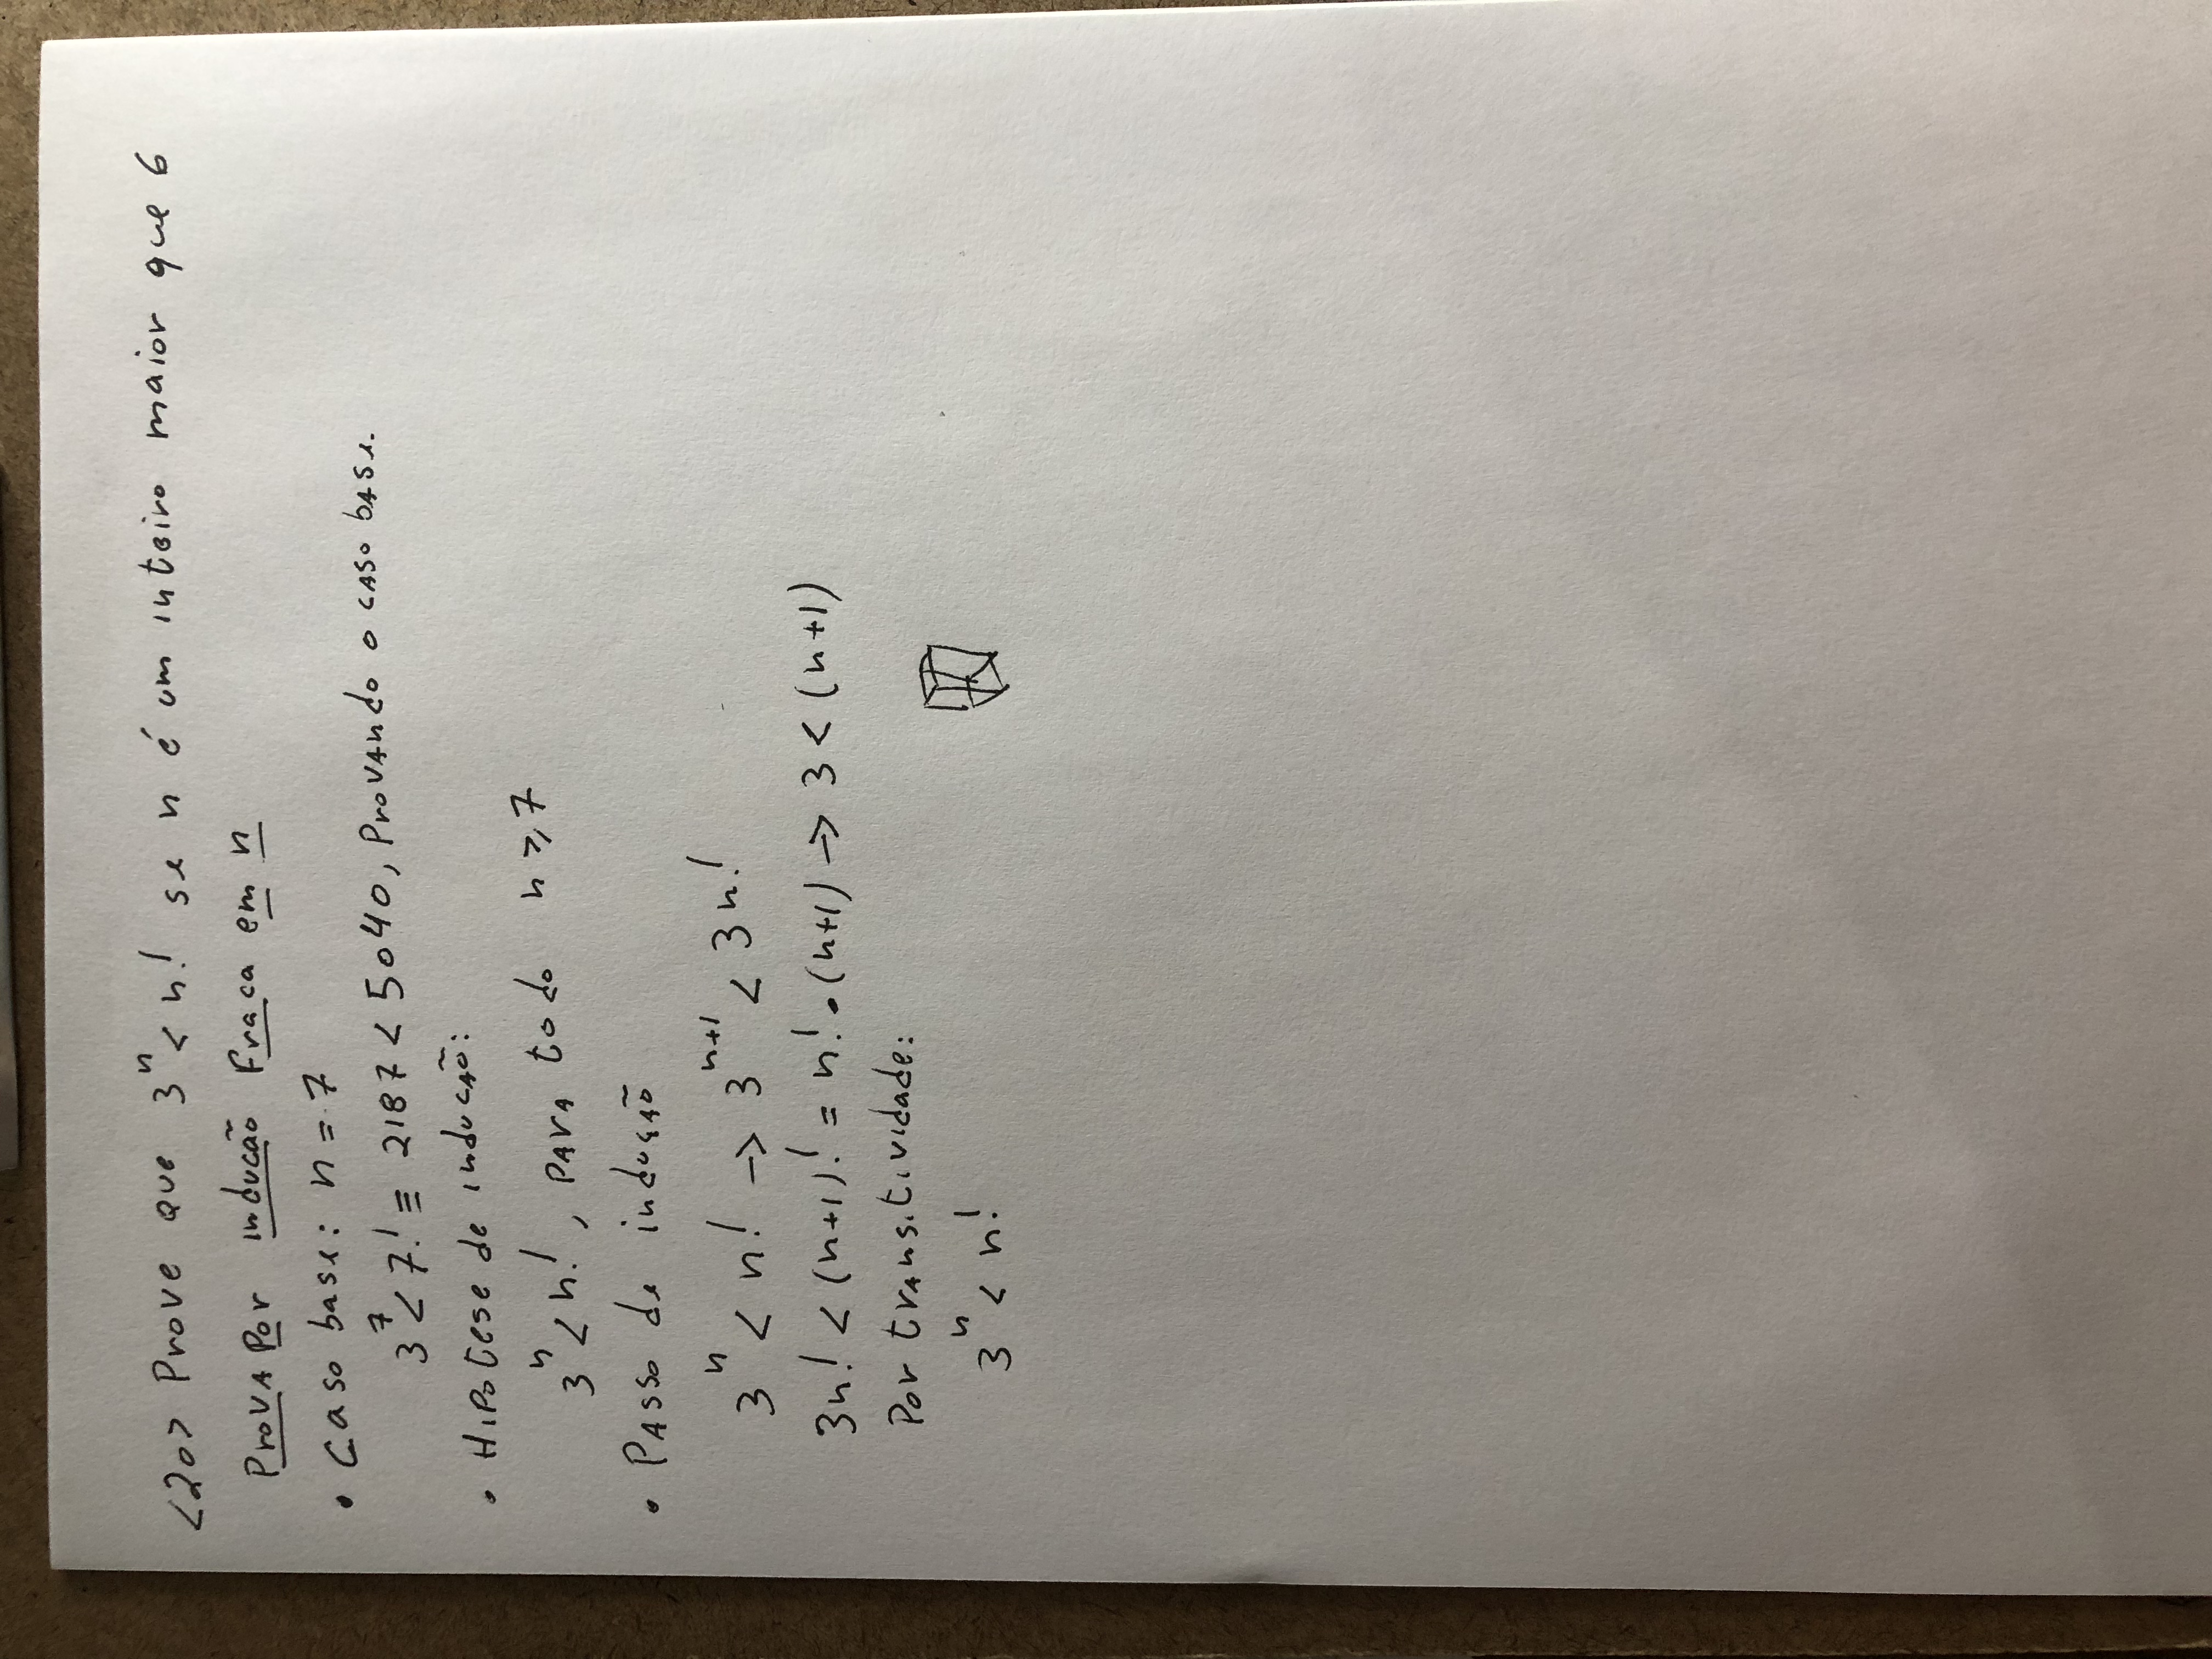 <20> Prove que 3ⁿ < n! se n é um inteiro maior que 6
Prova Por inducão Fraca em n
• Caso base: n = 7
3⁷ < 7! ≡ 2187 < 5040, Provando o caso base.
• Hipotese de inducão:
3ⁿ < n!, para todo n ⩾ 7
• Passo de indução
3ⁿ < n! → 3ⁿ⁺¹ < 3n!
3n! < (n+1)! = n! • (n+1) → 3 < (n+1)
Por transitividade:
3ⁿ < n!